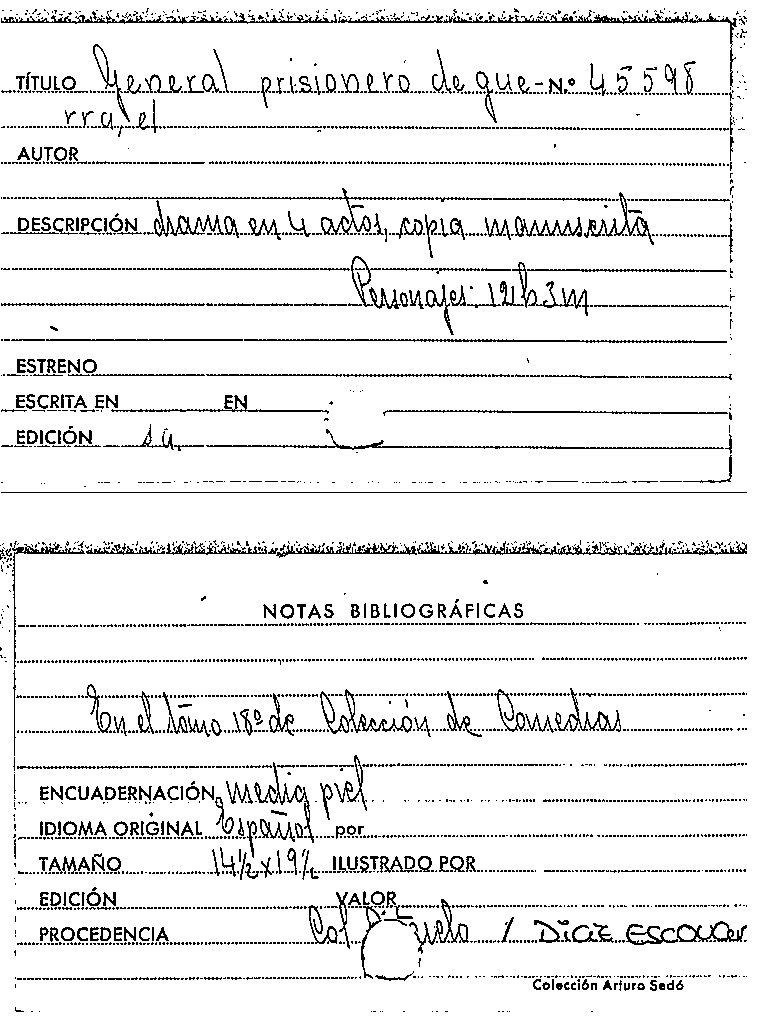 TÍTULO General prisionero de gue- N.º 45598
rra, el
AUTOR
DESCRIPCIÓN drama en 4 actos, copia manuscrita
Personajes: 12h 3m
ESTRENO
ESCRITA EN EN
EDICIÓN s.a.
NOTAS BIBLIOGRÁFICAS
En el tomo 18º de Colección de Comedias
ENCUADERNACIÓN media piel
IDIOMA ORIGINAL Español por
TAMAÑO 14½ x 19½ ILUSTRADO POR
EDICIÓN VALOR
PROCEDENCIA Col. / DiaZ ESCOVar
Colección Arturo Sedó